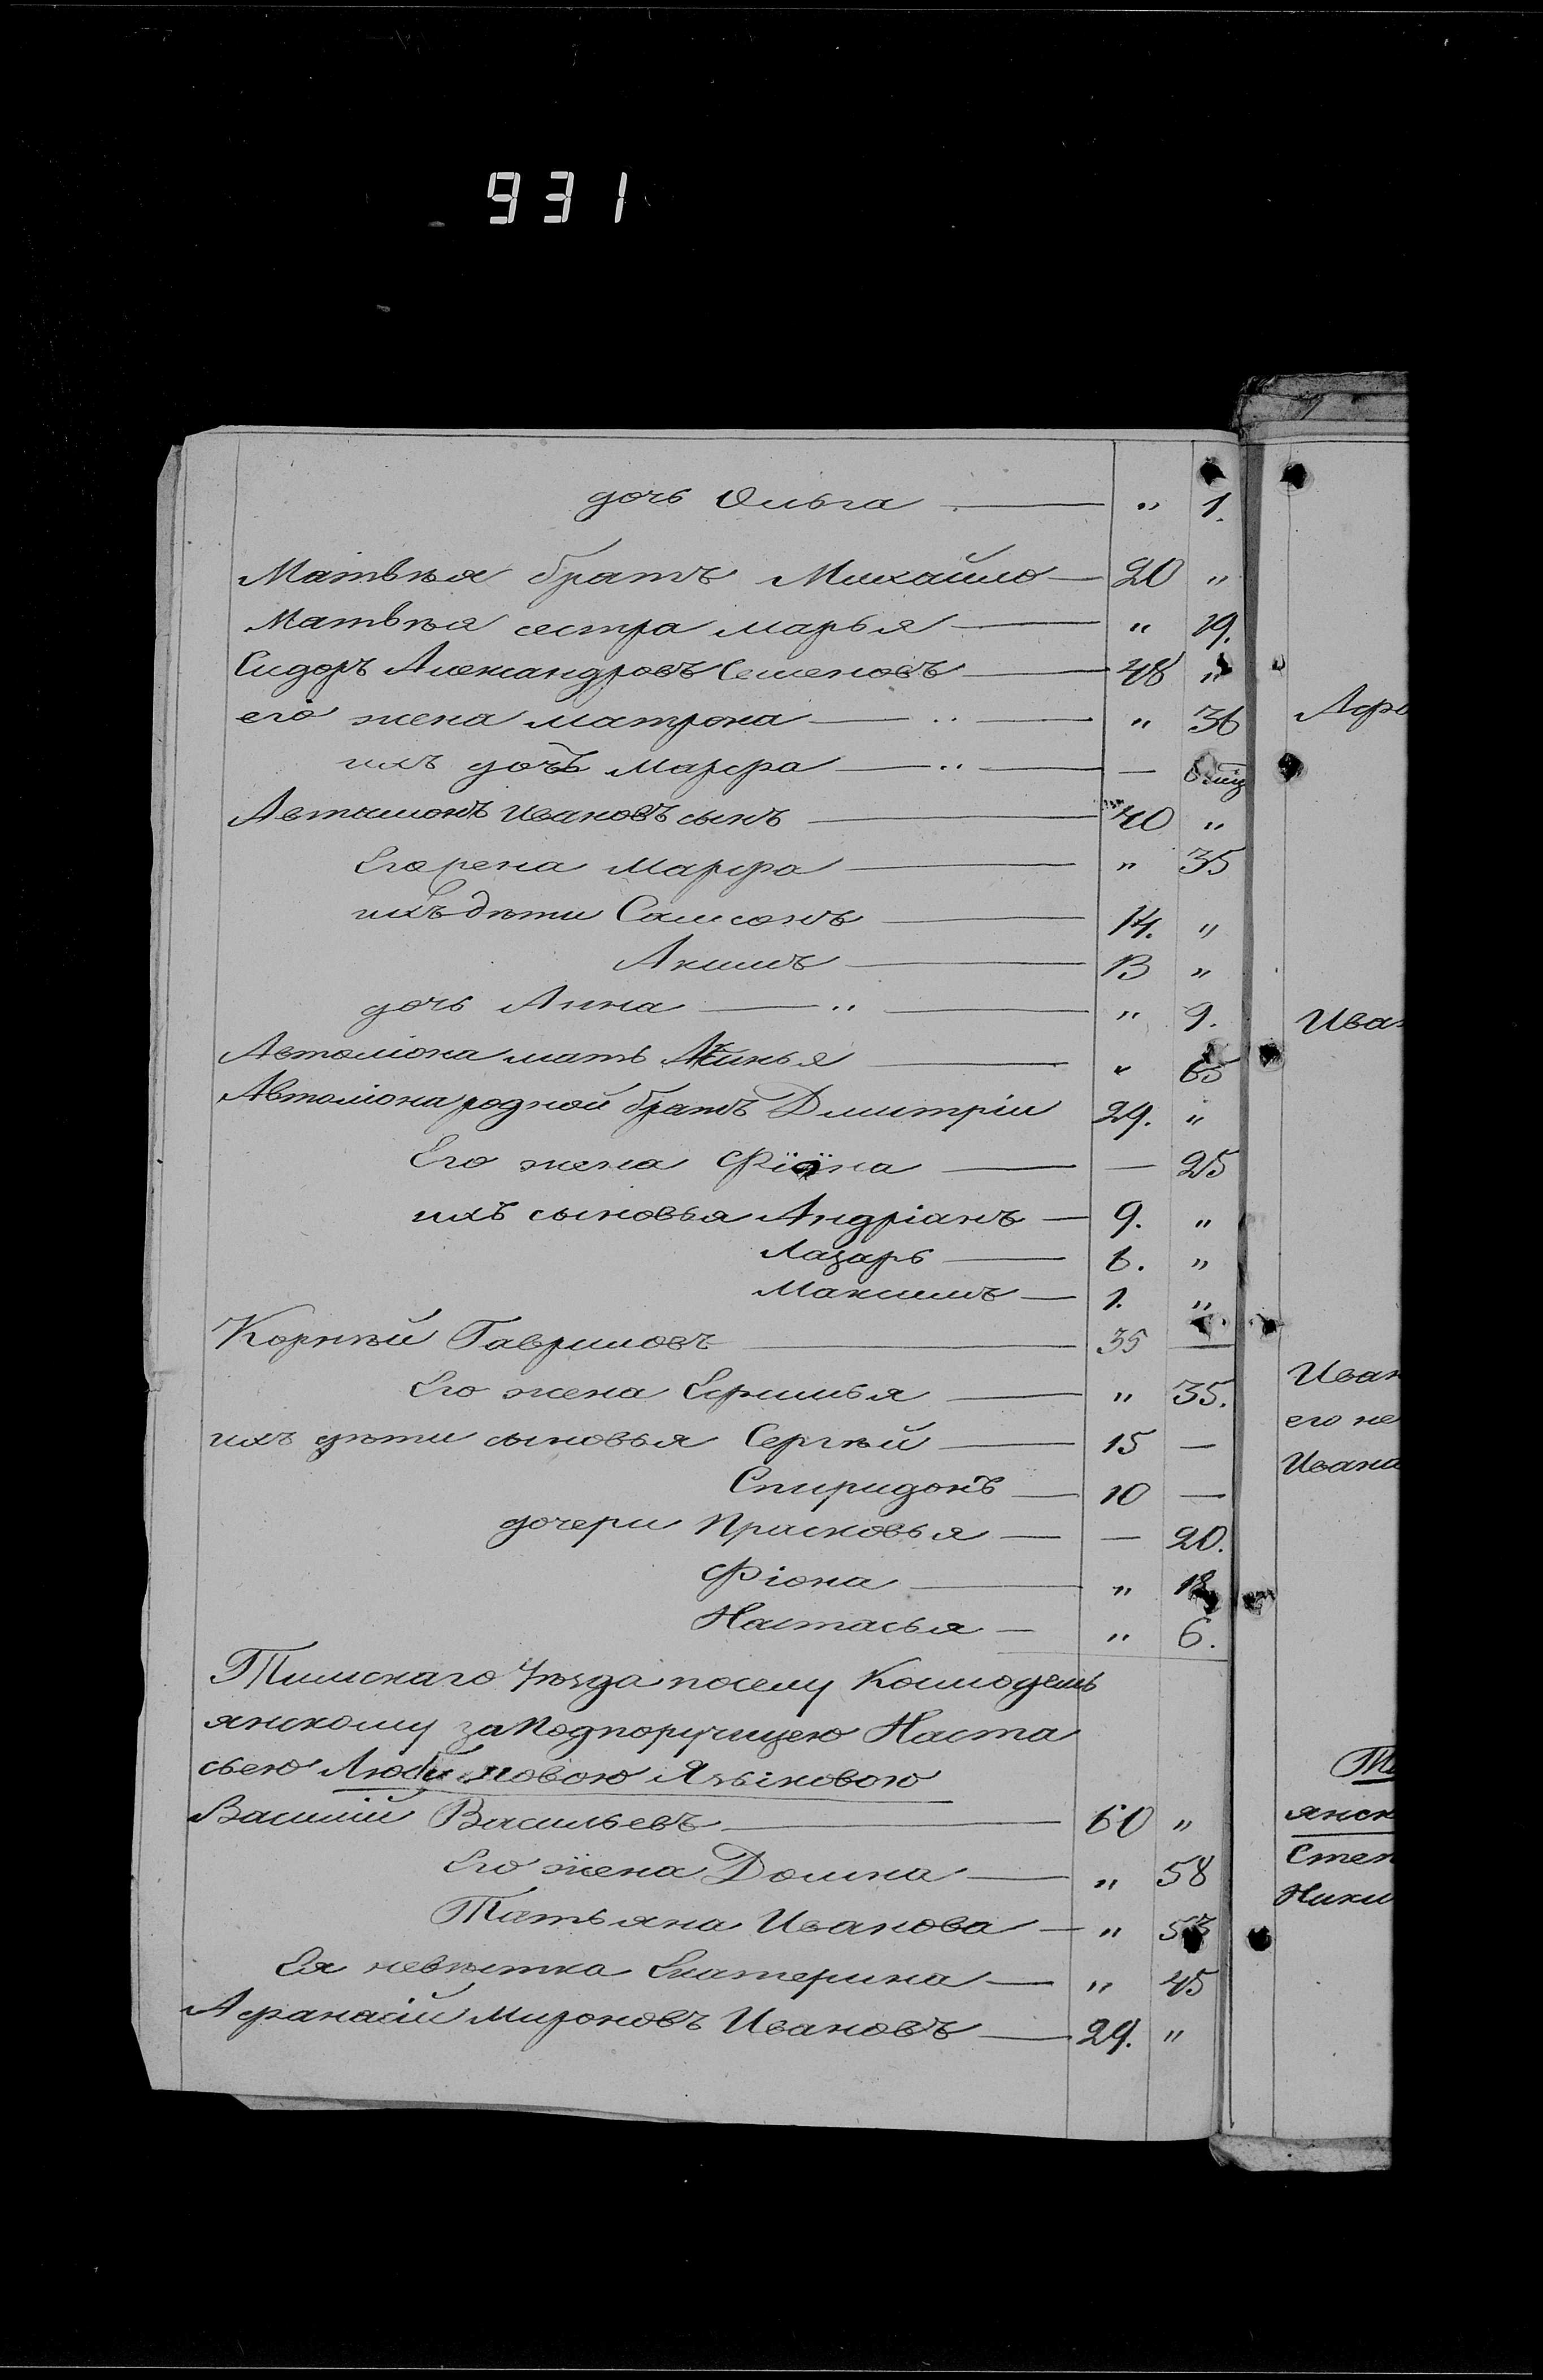 931
дочь Ольга — " 1.
Матвѣя братъ Михайло — 20 "
Матвѣя сестра Марья — " 19.
Сидоръ Александровъ Семеновъ — 48 "
его жена Матрона — " — " 36
ихъ дочь Марфа — " — — 6 мц
Автамонъ Ивановъ сынъ — 40 "
Его жена Марфа — " 35
ихъ дѣти Самсонъ — 14. "
Акимъ — 13 "
дочь Анна — " — " 9.
Автомона мать Аѯинья — " 65
Автомона родной братъ Дмитріи 29. "
Его жена Фіона — — 25
ихъ сыновья Андріанъ — 9. "
Лазарь — 6. "
Максимъ — 1. "
Корнѣй Гавриловъ — 35 —
Его жена Ефимья — " 35.
ихъ дѣти сыновья Сергѣй — 15 —
Спиридонъ — 10 —
дочери Прасковья — — 20.
Фіона — " 18
Настасья — " 6.
Тимскаго Уѣзда поселу Космодемь
янскому за Подпоручицею Наста
сьею Любимовою Языковою
Василій Васильевъ — 60 "
Его жена Домна — " 58
Татьяна Иванова — " 53
Ея невѣстка Екатерина — " 45
Афанасій Мироновъ Ивановъ — 29. "
Афо
Иван
Иван
его не
Ивана
Ти
янск
Степ
Ники